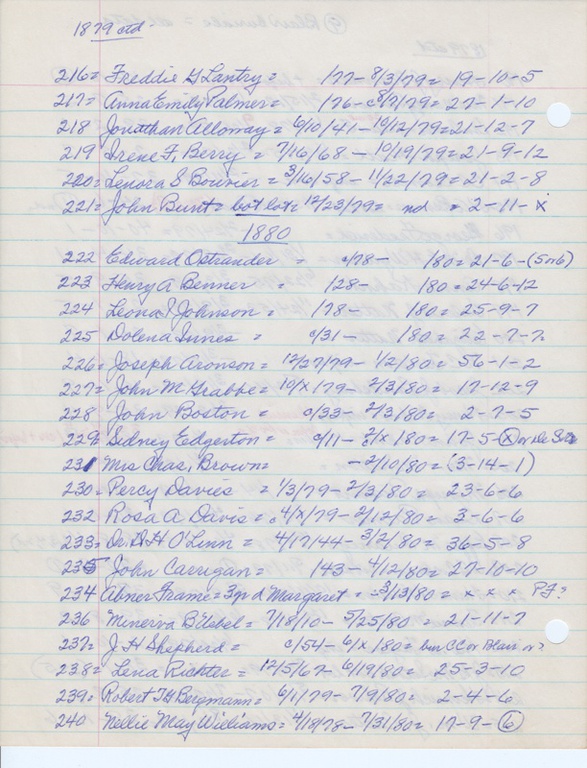 1879 ctd
216= Freddie G Lantry = /77- 8/3/79= 19-10-5
217= Anna Emily Palmer= /76- c8/7/79= 27-1-10
218 Jonathan Alloway= 6/10/41- 10/12/79=21-12-7
219 Irene F, Berry = 7/16/68 - 10/19/79=21-9-12
220= Lenora S Bouvier = 3/16/58 - 11/22/79=21-2-8
221= John Bunt= bot lot= 12/23/79= nd = 2-11-x
1880
222 Edward Ostrander = c/78- 180= 21-6-(5or6)
223 Henry A Benner = 128- 180=24-6-12
224 Leona I Johnson = 178- 180= 25-9-7
225 Dolena Innes = c/31- 180= 22-7-7.
226= Joseph Aronson = 12/27/79- 1/2/80= 56-1-2
227= John M Grabbe= 10/x/79- 2/3/80= 17-12-9
228 John Boston = c/33- 2/3/80= 2-7-5
229= Sidney Edgerton= c/11- 2/x 180= 17-5-(x) or De
231 Mrs Chas, Brown= -2/10/80= (3-14-1)
230= Percy Davies = 1/3/79- 2/3/80= 23-6-6
232 Rosa A Davis= c4/x/79- 2/12/80= 3-6-6
233= Dr. H H O'Linn= 4/17/44- 3/2/80= 36-5-8
235 John Carrigan= 143- 4/12/80= 27-10-10
234 Abner Frame= 3yr d Margaret = -3/13/80= x x x PF?
236 Minerva Bilsbel= 7/18/10- 5/25/80= 21-11-7
237= J. H Shepherd = c/54- 6/x 180= bur CC or Blair or?
238= Lena Richter= 12/5/67- 6/19/80= 25-3-10
239= Robert T G Bergmann= 6/1/79- 7/9/80= 2-4-6
240 Nellie May Williams= 4/18/78- 7/31/80= 17-9-(6)